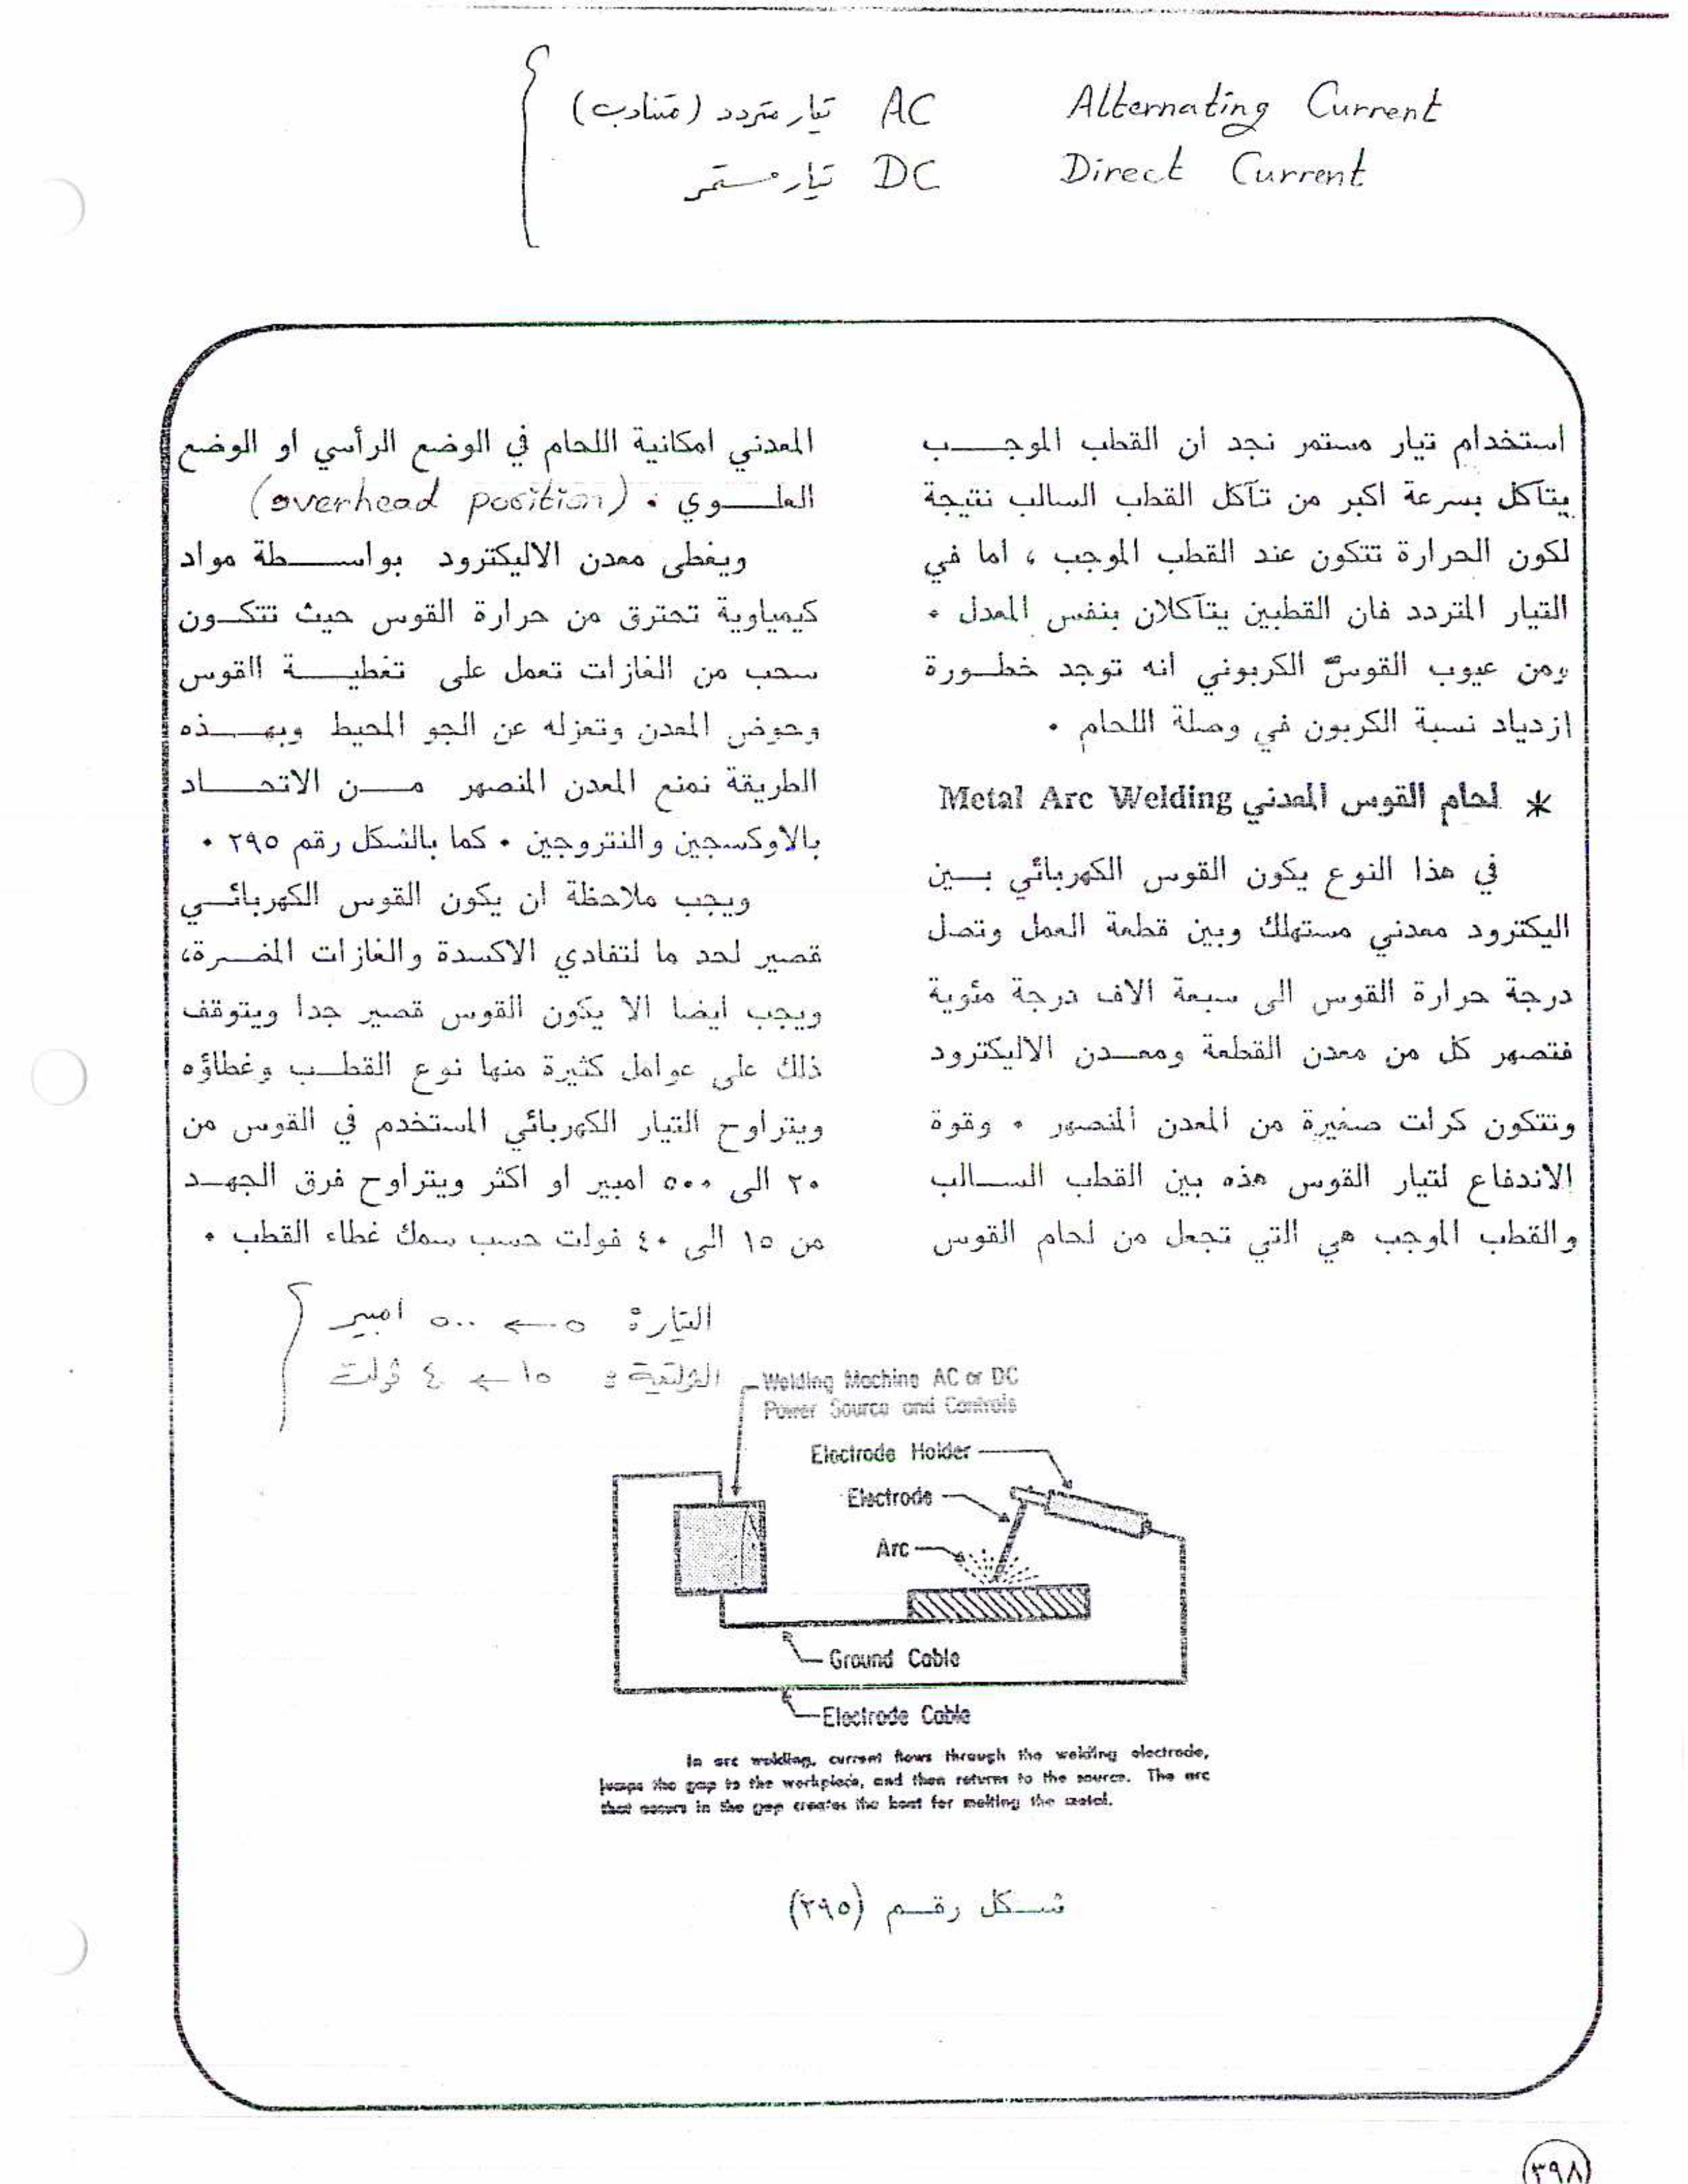 تيار متردد (متناوب) AC Alternating Current
تيار مستمر DC Direct Current
استخدام تيار مستمر نجد ان القطب الموجب
يتآكل بسرعة اكبر من تآكل القطب السالب نتيجة
لكون الحرارة تتكون عند القطب الموجب ، اما في
التيار المتردد فان القطبين يتآكلان بنفس المعدل .
ومن عيوب القوس الكربوني انه توجد خطورة
ازدياد نسبة الكربون في وصلة اللحام .
* لحام القوس المعدني Metal Arc Welding
في هذا النوع يكون القوس الكهربائي بين
اليكترود معدني مستهلك وبين قطعة العمل وتصل
درجة حرارة القوس الى سبعة الاف درجة مئوية
فتصهر كل من معدن القطعة ومعدن الاليكترود
وتتكون كرات صغيرة من المعدن المنصهر . وقوة
الاندفاع لتيار القوس هذه بين القطب السالب
والقطب الموجب هي التي تجعل من لحام القوس
المعدني امكانية اللحام في الوضع الرأسي او الوضع
العلوي . (overhead position)
ويغطى معدن الاليكترود بواسطة مواد
كيمياوية تحترق من حرارة القوس حيث تتكون
سحب من الغازات تعمل على تغطية القوس
وحوض المعدن وتعزله عن الجو المحيط وبهذه
الطريقة نمنع المعدن المنصهر من الاتحاد
بالاوكسجين والنتروجين . كما بالشكل رقم ٢٩٥ .
ويجب ملاحظة ان يكون القوس الكهربائي
قصير لحد ما لتفادي الاكسدة والغازات المضرة،
ويجب ايضا الا يكون القوس قصير جدا ويتوقف
ذلك على عوامل كثيرة منها نوع القطب وغطاؤه
ويتراوح التيار الكهربائي المستخدم في القوس من
٢٠ الى ٥٠٠ امبير او اكثر ويتراوح فرق الجهد
من ١٥ الى ٤٠ فولت حسب سمك غطاء القطب .
٥٠٠ امبير
١٥ ← ٤٠ ڤولت
Welding Machine AC or DC
Power Source and Controls
Electrode Holder
Electrode
Arc
Ground Cable
Electrode Cable
In arc welding, current flows through the welding electrode,
jumps the gap to the workpiece, and then returns to the source. The arc
that occurs in the gap creates the heat for melting the metal.
شكل رقم (٢٩٥)
٣٩٨